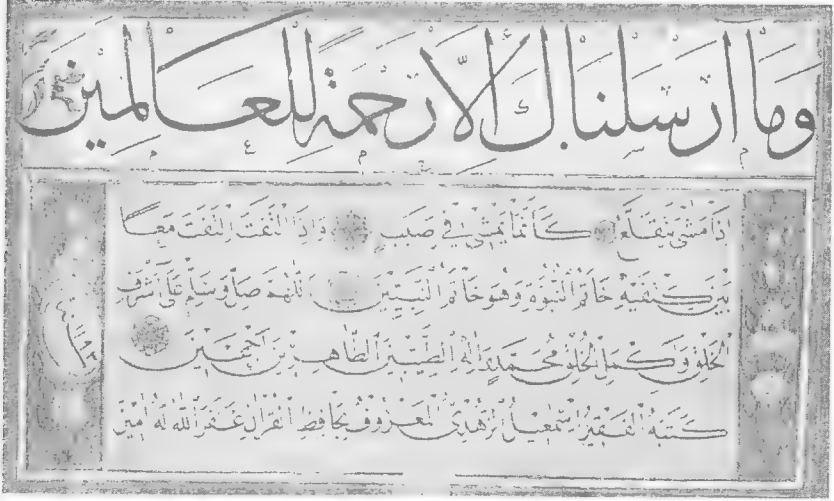 وَمَا أَرْسَلْنَاكَ إِلَّا رَحْمَةً لِلْعَالَمِينَ
إِذَا مَشَى يَتَقَلَّعُ كَأَنَّمَا يَمْشِي فِي صَبَبٍ وَإِذَا الْتَفَتَ الْتَفَتَ مَعًا
بَيْنَ كَتِفَيْهِ خَاتَمُ النُّبُوَّةِ وَهُوَ خَاتَمُ النَّبِيِّينَ اللَّهُمَّ صَلِّ وَسَلِّمْ عَلَى أَشْرَفِ
الْخَلْقِ وَأَكْمَلِ الْخَلْقِ مُحَمَّدٍ وَآلِهِ الطَّيِّبِينَ الطَّاهِرِينَ أَجْمَعِينَ
كَتَبَهُ الْفَقِيرُ إِسْمَعِيلُ الزُّهْدِيُّ الْمَعْرُوفُ بِحَافِظِ الْقُرْآنِ غَفَرَ اللَّهُ لَهُ آمِينَ